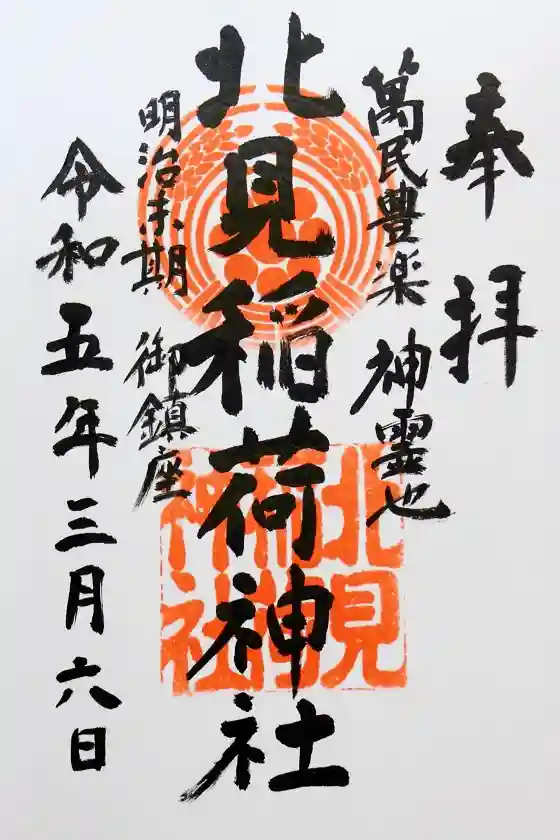 奉拝
萬民豊楽 神霊也
北見稲荷神社
明治末期 御鎮座
令和五年三月六日
北見
稲荷
神社